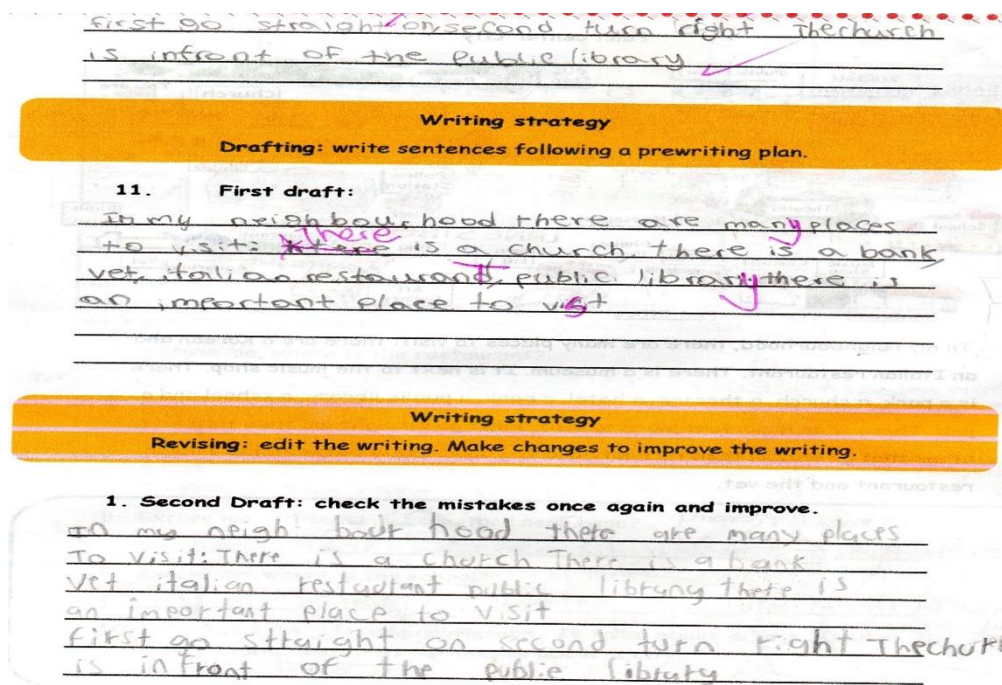 first go straight on second turn right Thechurch
is infront of the public library
Writing strategy
Drafting: write sentences following a prewriting plan.
11. First draft:
In my neighbourhood there are many places
to visit: There is a church, there is a bank,
vet, italian restaurant, public library there is
an important place to visit
Writing strategy
Revising: edit the writing. Make changes to improve the writing.
1. Second Draft: check the mistakes once again and improve.
In my neigh bour hood there are many places
To visit: There is a church There is a bank
Vet italian restautant public library there is
an important place to visit
First go straight on second turn right Thechurch
is infront of the public library